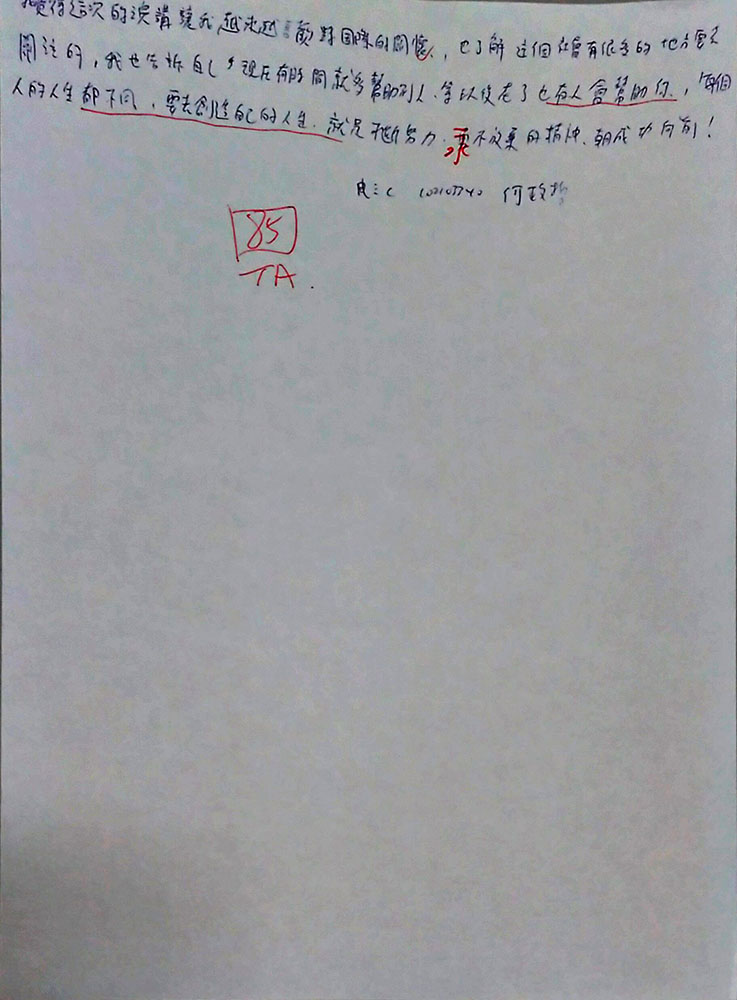 我覺得這次的演講讓我越來越 對國際的關懷,也了解這個社會有很多的地方要去
關注的,我也告訴自己,現在有時間就多幫助別人,等以後老了也有人會幫助你,每個
人的人生都不同,要去創造自己的人生,就是 努力,秉不放棄的精神,朝成功向前!
何政
85
TA.